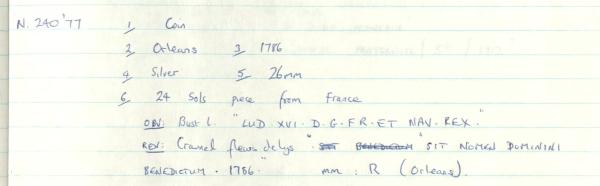 N. 240'77 1 Coin
2 Orleans 3 1786
4 Silver 5 26mm
6 24 Sols piece from France
OBV: Bust L. "LUD. XVI. D. G. FR. ET NAV. REX."
REV: Crowned fleurs de lys "SIT BENEDICTUM "SIT NOMEN DOMININI
BENEDICTUM. 1786." mm: R (Orleans).